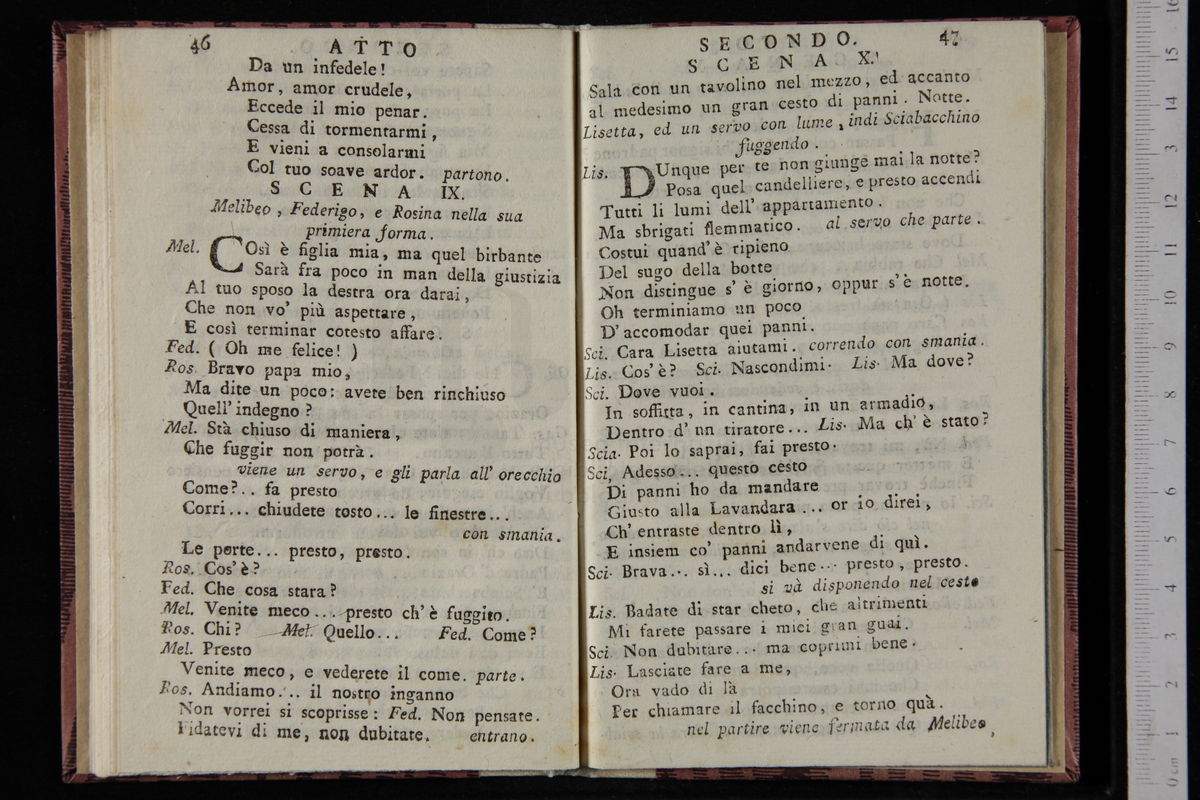 46 ATTO
Da un infedele!
Amor, amor crudele,
Eccede il mio penar.
Cessa di tormentarmi,
E vieni a consolarmi
Col tuo soave ardor. partono.
SCENA IX.
Melibeo, Federigo, e Rosina nella sua
primiera forma.
Mel. COsì è figlia mia, ma quel birbante
Sarà fra poco in man della giustizia
Al tuo sposo la destra ora darai,
Che non vo' più aspettare,
E così terminar cotesto affare.
Fed. ( Oh me felice! )
Ros. Bravo papa mio,
Ma dite un poco: avete ben rinchiuso
Quell' indegno?
Mel. Stà chiuso di maniera,
Che fuggir non potrà.
viene un servo, e gli parla all' orecchio
Come?.. fa presto
Corri... chiudete tosto... le finestre...
con smania.
Le porte... presto, presto.
Ros. Cos' è?
Fed. Che cosa stara?
Mel. Venite meco... presto ch' è fuggito.
Ros. Chi? Mel. Quello... Fed. Come?
Mel. Presto
Venite meco, e vederete il come. parte.
Ros. Andiamo... il nostro inganno
Non vorrei si scoprisse: Fed. Non pensate.
Fidatevi di me, non dubitate. entrano.
SECONDO. 47
SCENA X.
Sala con un tavolino nel mezzo, ed accanto
al medesimo un gran cesto di panni. Notte.
Lisetta, ed un servo con lume, indi Sciabacchino
fuggendo.
Lis. DUnque per te non giunge mai la notte?
Posa quel candelliere, e presto accendi
Tutti li lumi dell' appartamento.
Ma sbrigati flemmatico. al servo che parte.
Costui quand' è ripieno
Del sugo della botte
Non distingue s' è giorno, oppur s' è notte.
Oh terminiamo un poco
D' accomodar quei panni.
Sci. Cara Lisetta aiutami. correndo con smania.
Lis. Cos' è? Sci. Nascondimi. Lis. Ma dove?
Sci. Dove vuoi.
In soffitta, in cantina, in un armadio,
Dentro d' nn tiratore... Lis. Ma ch' è stato?
Scia. Poi lo saprai, fai presto.
Sci, Adesso... questo cesto
Di panni ho da mandare
Giusto alla Lavandara... or io direi,
Ch' entraste dentro lì,
E insiem co' panni andarvene di quì.
Sci. Brava... sì... dici bene... presto, presto.
si và disponendo nel cesto
Lis. Badate di star cheto, che altrimenti
Mi farete passare i miei gran guai.
Sci. Non dubitare... ma coprimi bene.
Lis. Lasciate fare a me,
Ora vado di là
Per chiamare il facchino, e torno quà.
nel partire viene fermata da Melibeo,
15
14
13
12
11
10
9
8
7
6
5
4
3
2
1
0 cm